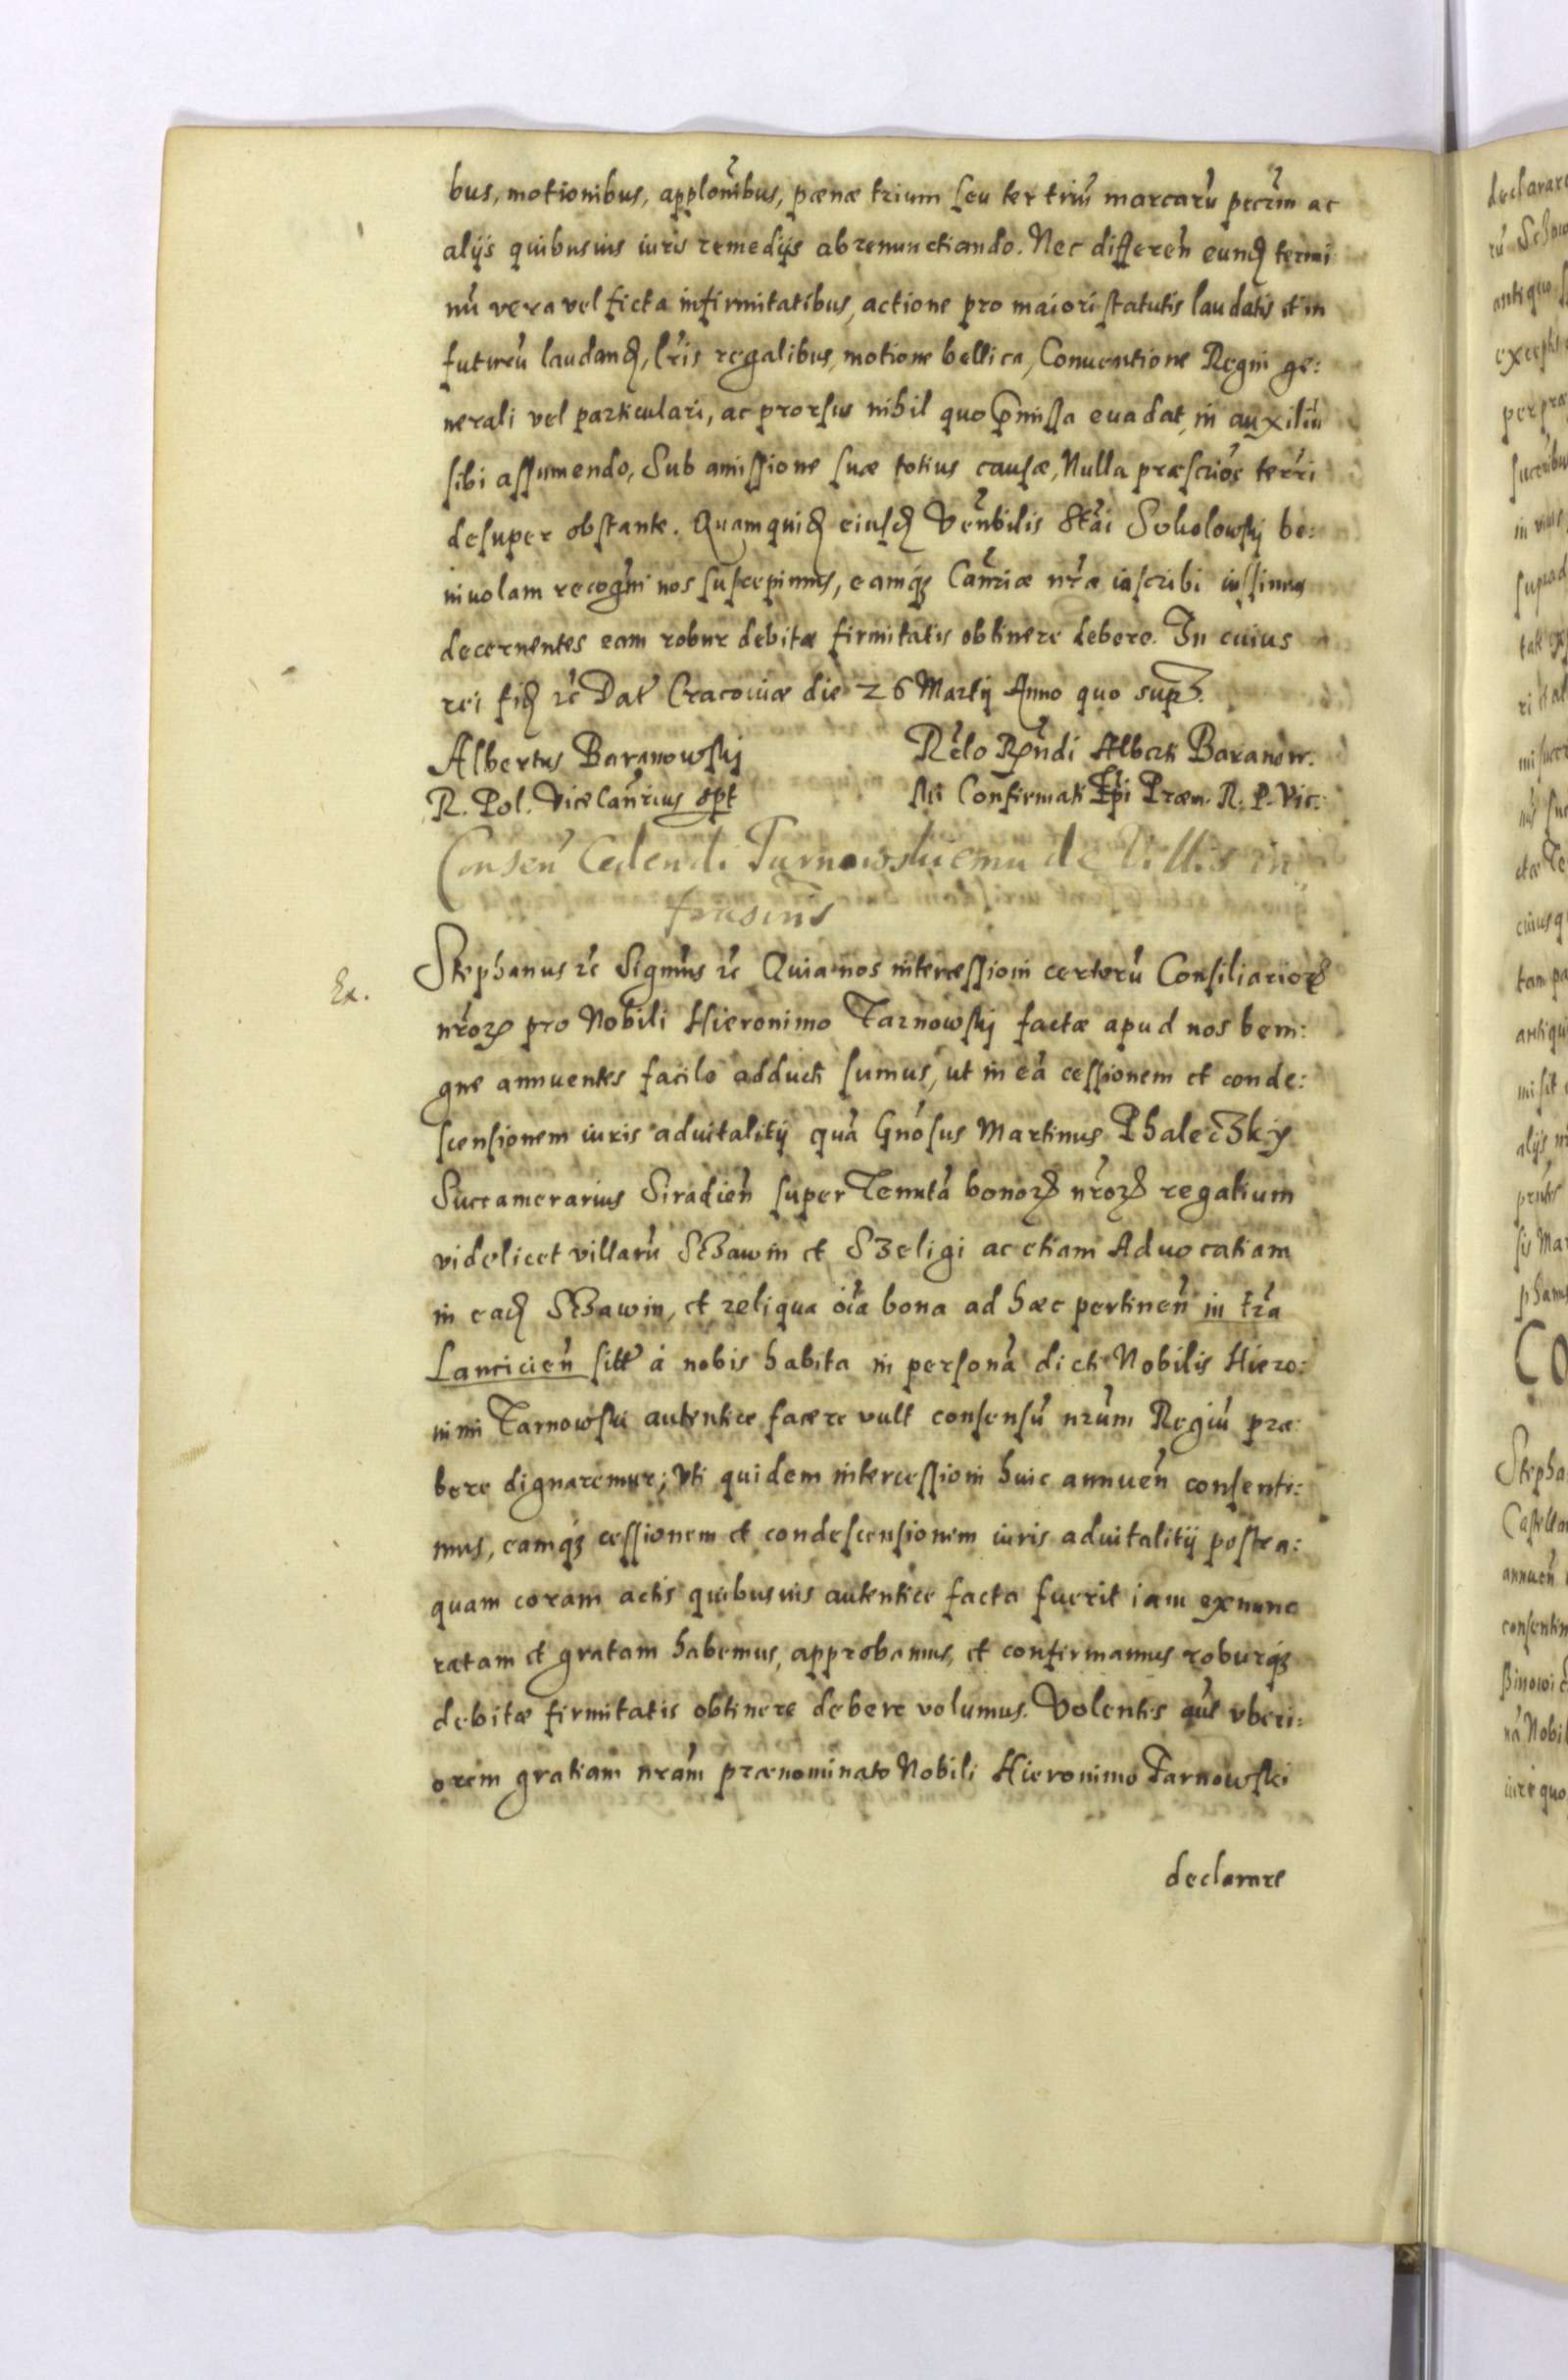 bus, motionibus, applōnibus, pænæ trium seu ter triū marcarū pecūm ac
alijs quibusuis iuris remedijs abrenunctiando. Nec differeñ eund termi
nū vera vel ficta infirmitatibus, actione pro maiori statutis laudatis et in
futurū laudand, lr̃is regalibus, motione bellica, Conuentione Regni ge:
nerali vel particulari, ac prorsus nihil quo p̄missa euadat, in auxiliū
sibi assumendo, Sub amissione suæ totius causæ, Nulla præscriōe terr̃i
desuper obstante. Quamquid eiusd Veñbilis Stai Sokolowskj be:
niuolam recogni nos suscepimus, eamqʒ Cañriæ nr̃æ inscribi iussimus
decernentes eam robur debitæ firmitatis obtinere debere. In cuius
rei fid ꝛc Dat̃ Cracoviæ die 26 Martij Anno quo sup̃.
Albertus Baranowskj
R. Pol. Vicecañrius spt
Rẽlo Rñdi Alberti Baranow.
ski Confirmati Ep̃i Præm. R. P. Vic:
Conseñ Cedendi Tarnowskiemu de Villis in
frascriptis
Ex.
Stephanus ꝛc Signm̃s ꝛc Quia nos intercessioni certorū Consiliarioꝝ
nr̃oꝝ pro Nobili Hieronimo Tarnowskj factæ apud nos beni:
gne annuentes facile adducti sumus, ut in eā cessionem et conde:
scensionem iuris aduitalitij quā Gñosus Martinus Phalecʒky
Succamerarius Siradieñ super Tenutā bonoꝝ nr̃oꝝ regalium
videlicet villarū Scʒawin et Sʒeligi ac etiam Aduocatiam
in ead Scʒawin, et reliqua oīa bona ad hæc pertineñ in tr̃a
Lanicieñ sitt̃ à nobis habita in personā dicti Nobilis Hiero:
nimi Tarnowski autentice facere vult consensū nr̃um Regiū præ
bere dignaremur; Vti quidem intercessioni huic annueñ consenti:
mus, eamqʒ cessionem et condescensionem iuris aduitalitij postea:
quam coram actis quibusuis autentice facta fuerit iam exnunc
ratam et gratam habemus, approbamus, et confirmamus roburqʒ
debitæ firmitatis obtinere debere volumus. Volentes aūt vberi:
orem gratiam nr̃am prænominato Nobili Hieronimo Tarnowski
declarare